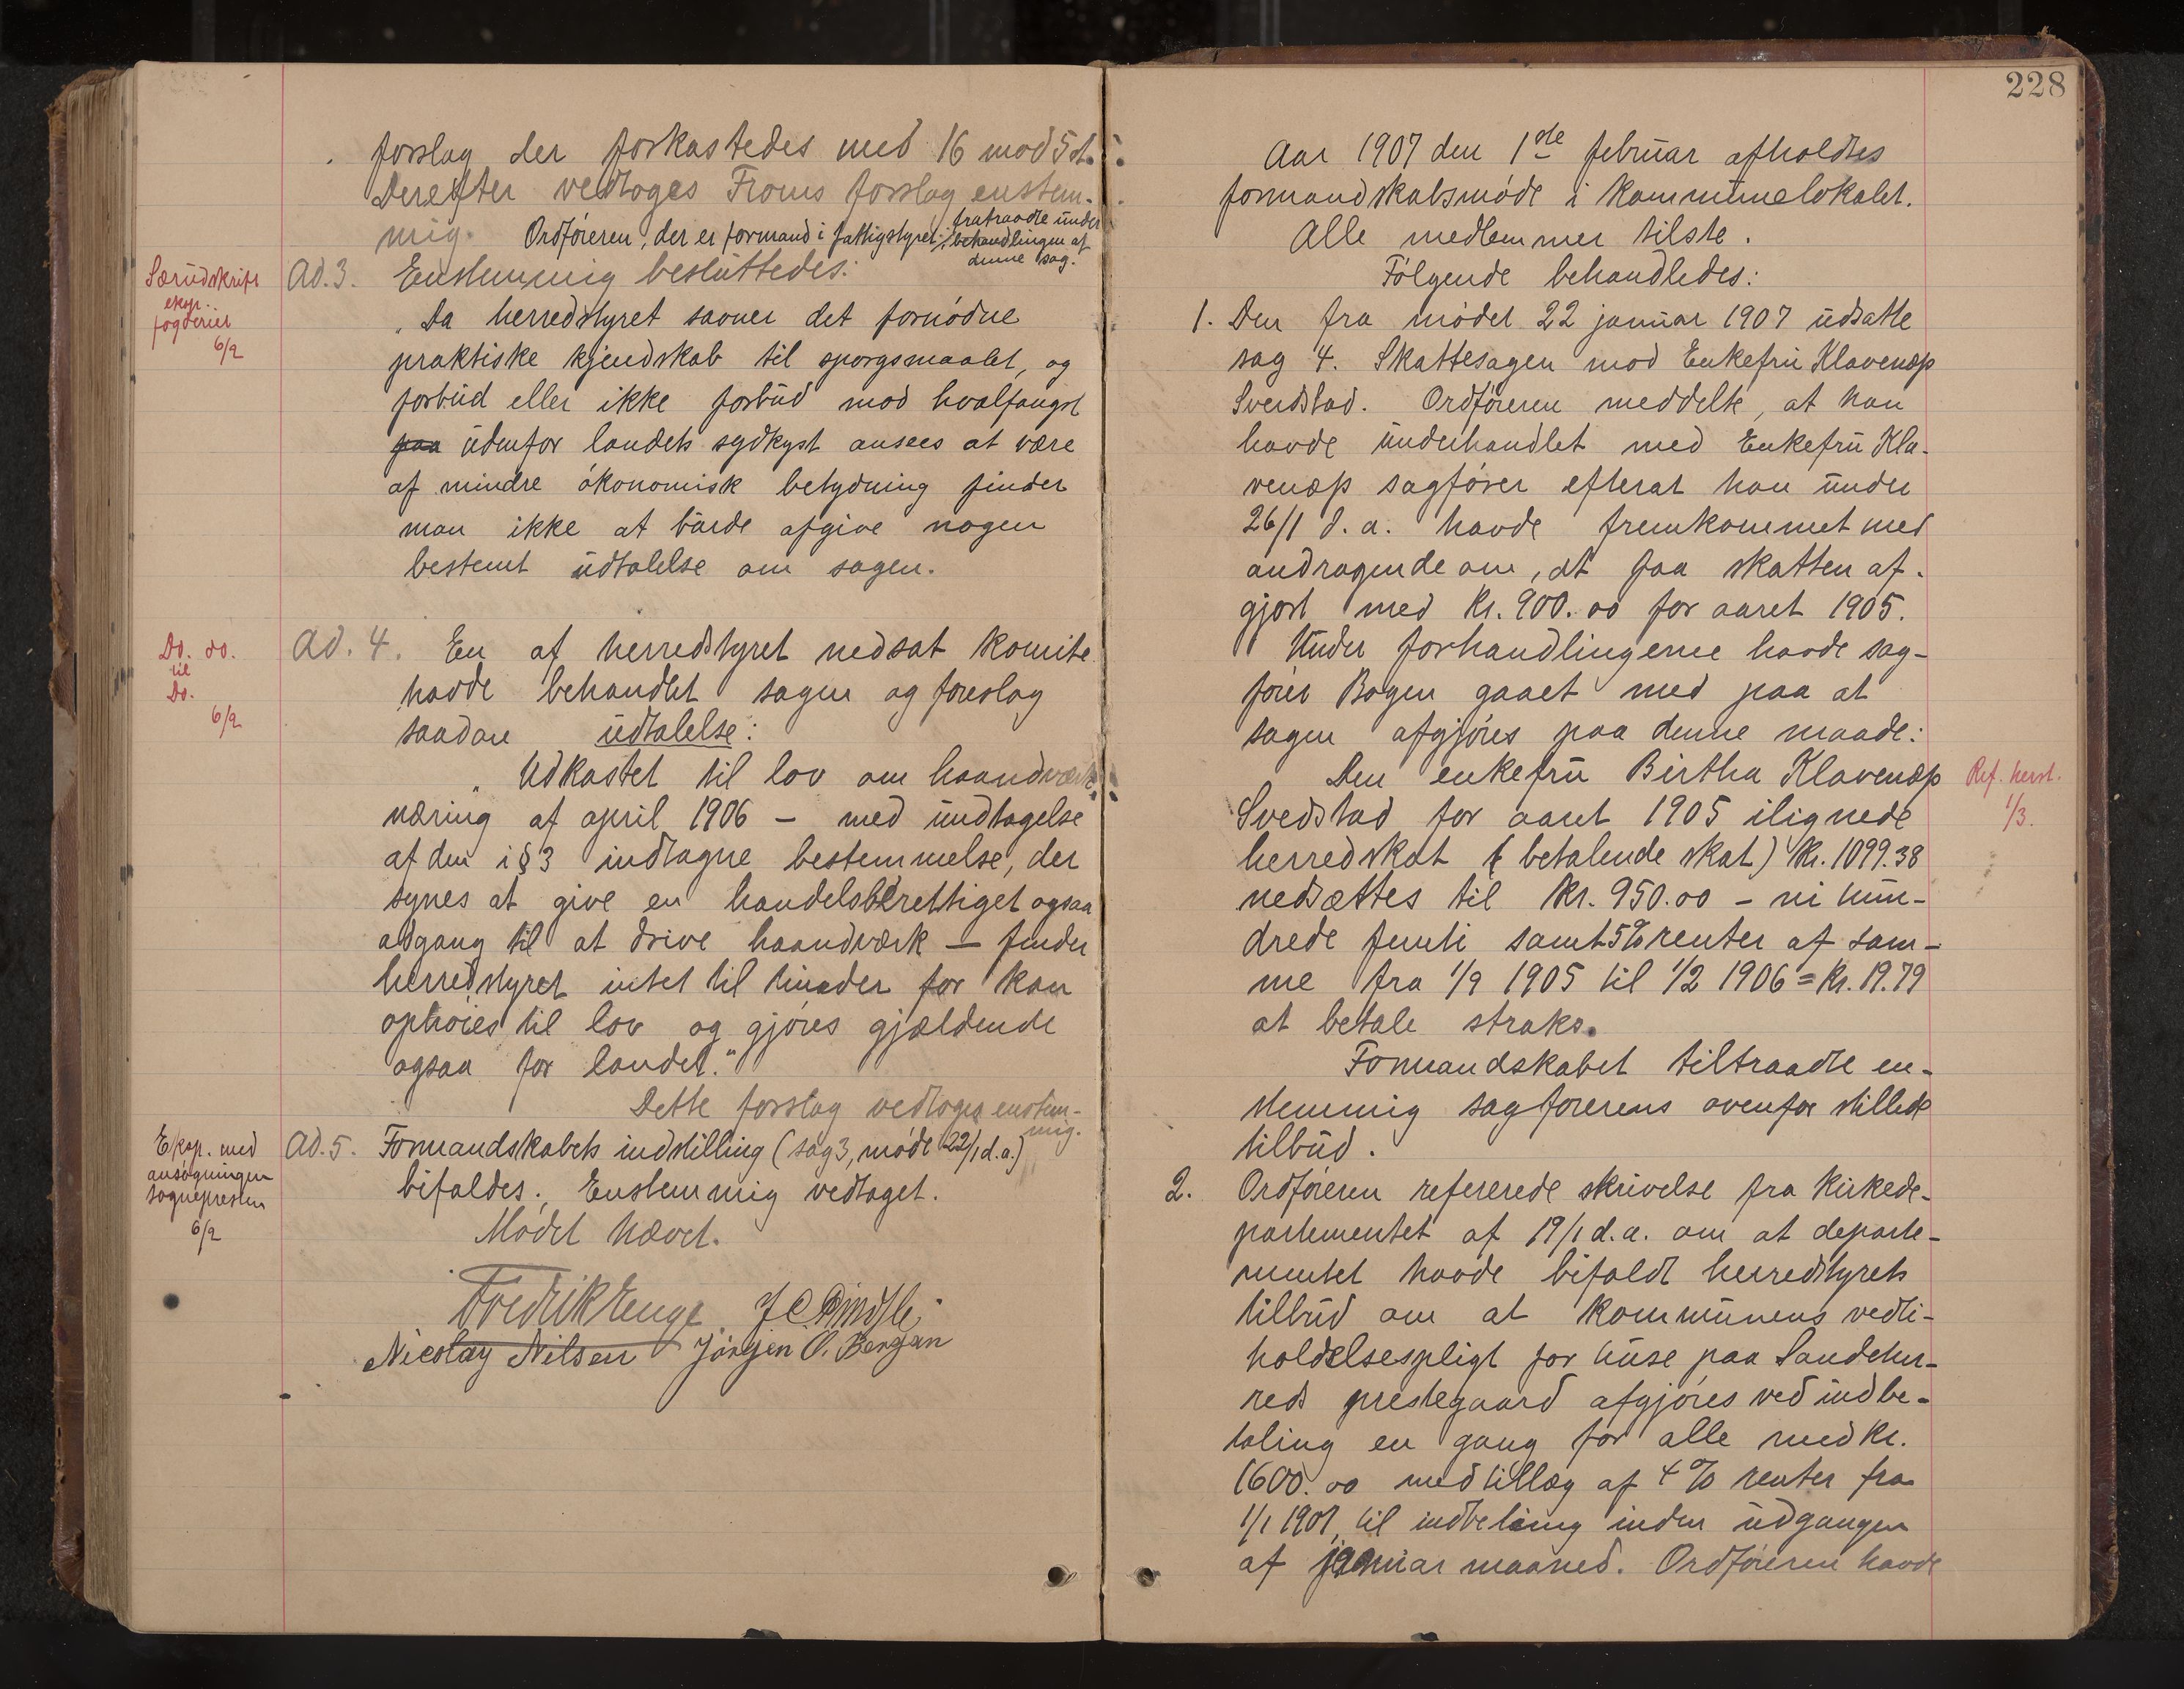 forslag der forkastedes med 16 mod 5 st.
Derefter vedtoges Froms forslag enstem-
mig. Ordføreren, der er formand i fattigstyret, fratraadte under
behandlingen af
denne sag.
Særudskrift
eksp.
fogderiet
6/2
Ad. 3. Enstemmig besluttedes:
„Da herredstyret savner det fornødne
praktiske kjendskab til spørgsmaalet, og
forbud eller ikke forbud mod hvalfangst
paa udenfor landets sydkyst ansees at være
af mindre økonomisk betydning finder
man ikke at burde afgive nogen
bestemt udtalelse om sagen.
Do. do.
til
Do.
6/2
Ad. 4. En af herredstyret nedsat komite
havde behandlet sagen og foreslog
saadan udtalelse:
„Udkastet til lov om haandværks
næring af april 1906 – med undtagelse
af den i § 3 indtagne bestemmelse, der
synes at give en handelsberettiget ogsaa
adgang til at drive haandværk – finder
herredstyret intet til hinder for kan
ophøies til lov og gjøres gjældende
ogsaa for landet."
Dette forslag vedtoges enstem-
mig.
Eksp. med
ansøgningen
sognepresten
6/2
Ad. 5. Formandskabets indstilling (sag 3, møde 22/1 d.a.)
bifaldes. Enstemmig vedtaget.
Mødet hævet.
Fredrik Enge.
Nicolay Nilsen Jörgen O. Bergan
228
Aar 1907 den 1ste februar afholdtes
formandskabsmøde i kommunelokalet.
Alle medlemmer tilste.
Følgende behandledes:
1. Den fra mødet 22 januar 1907 udsatte
sag 4. Skattesagen mod Enkefru Klavenæs
Sverdstad. Ordføreren meddelte, at han
havde underhandlet med Enkefru Kla-
venæs sagfører efterat han under
26/1 d.a. havde fremkommet med
andragende om, at faa skatten af-
gjort med Kr. 900.00 for aaret 1905.
Under forhandlingerne havde sag-
fører Bogen gaaet med paa at
sagen afgjøres paa denne maade:
Den enkefru Birtha Klavenæs
Svedstad for aaret 1905 ilignede
herredskat (betalende skat) Kr. 1099.38
nedsættes til Kr. 950.00 – ni hun-
drede femti samt 5% renter af sam-
me fra 1/9 1905 til 1/2 1906 = Kr. 19.79
at betale straks.
Ref. herst.
1/3.
Formandskabet tiltraadte en-
stemmig sagførerens ovenfor stillede
tilbud.
2. Ordføreren refererede skrivelse fra Kirkede-
partementet af 19/1 d.a. om at departe-
mentet havde bifaldt herredstyrets
tilbud om at kommunens vedli-
holdelsespligt for huse paa Sandeher-
reds prestegaard afgjøres ved indbe-
taling en gang for alle med Kr.
1600.00 med tillæg af 4% renter fra
1/1 1907, til indbetaling inden udgangen
af januar maaned. Ordføreren havde